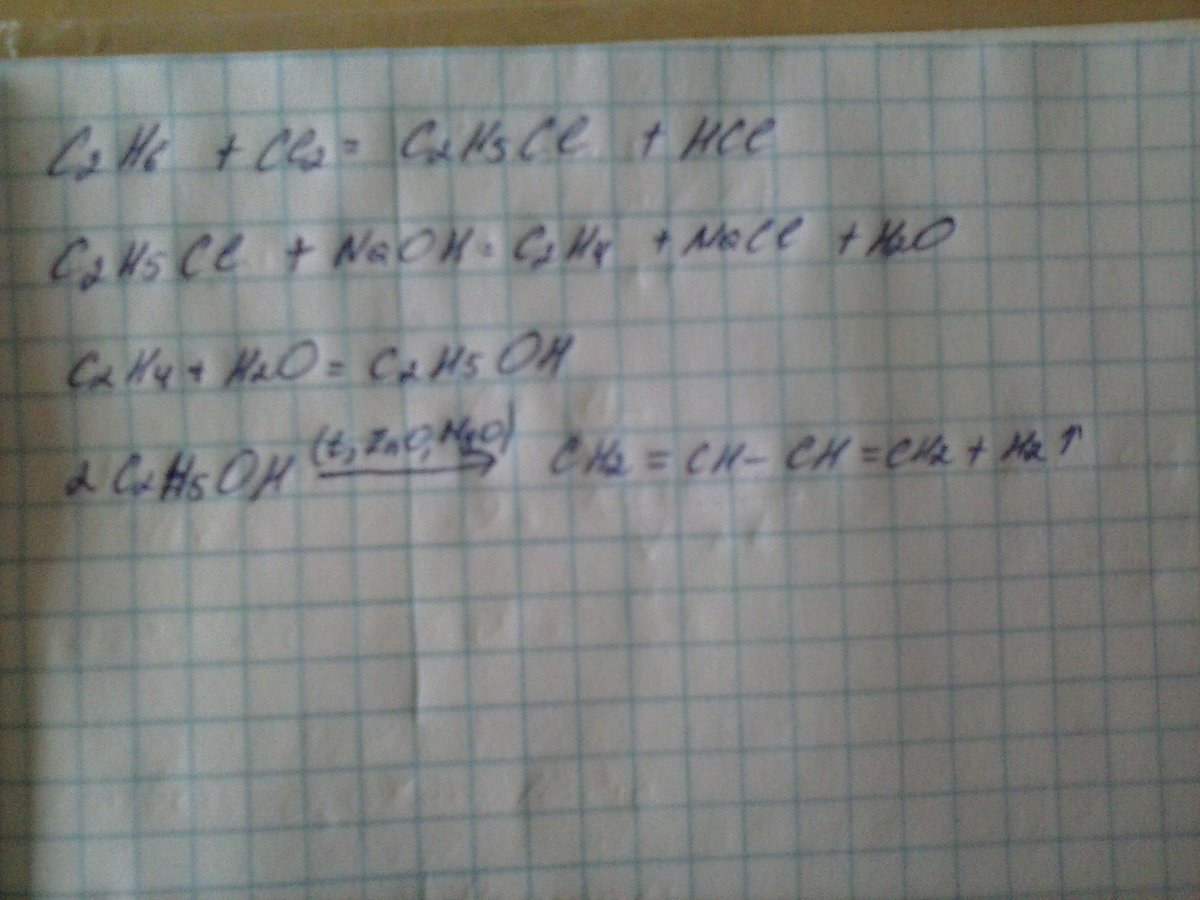 C₂H₆ + Cl₂ = C₂H₅Cl + HCl
C₂H₅Cl + NaOH = C₂H₄ + NaCl + H₂O
C₂H₄ + H₂O = C₂H₅OH
2C₂H₅OH (t, ZnO, MgO) → CH₂ = CH – CH = CH₂ + H₂↑